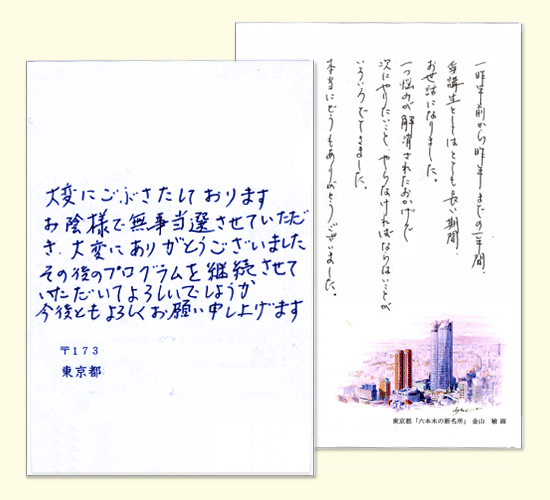 大変にごぶさたしております
お陰様で無事当選させていただだ
き、大変にありがとうございました
その後のプログラムを継続させて
いただいてよろしいでしょうか
今後ともよろしくお願い申し上げます
〒173
東京都
一昨年前から昨年までの一年間、
受講生としてはとても長い期間
お世話になりました。
一つ悩みが解消されたおかげで
次にやりたいこと、やらなければならないことが
いろいろでてきました。
本当にどうもありがとうございました。
東京都「六本木の新名所」 金山 敏 画